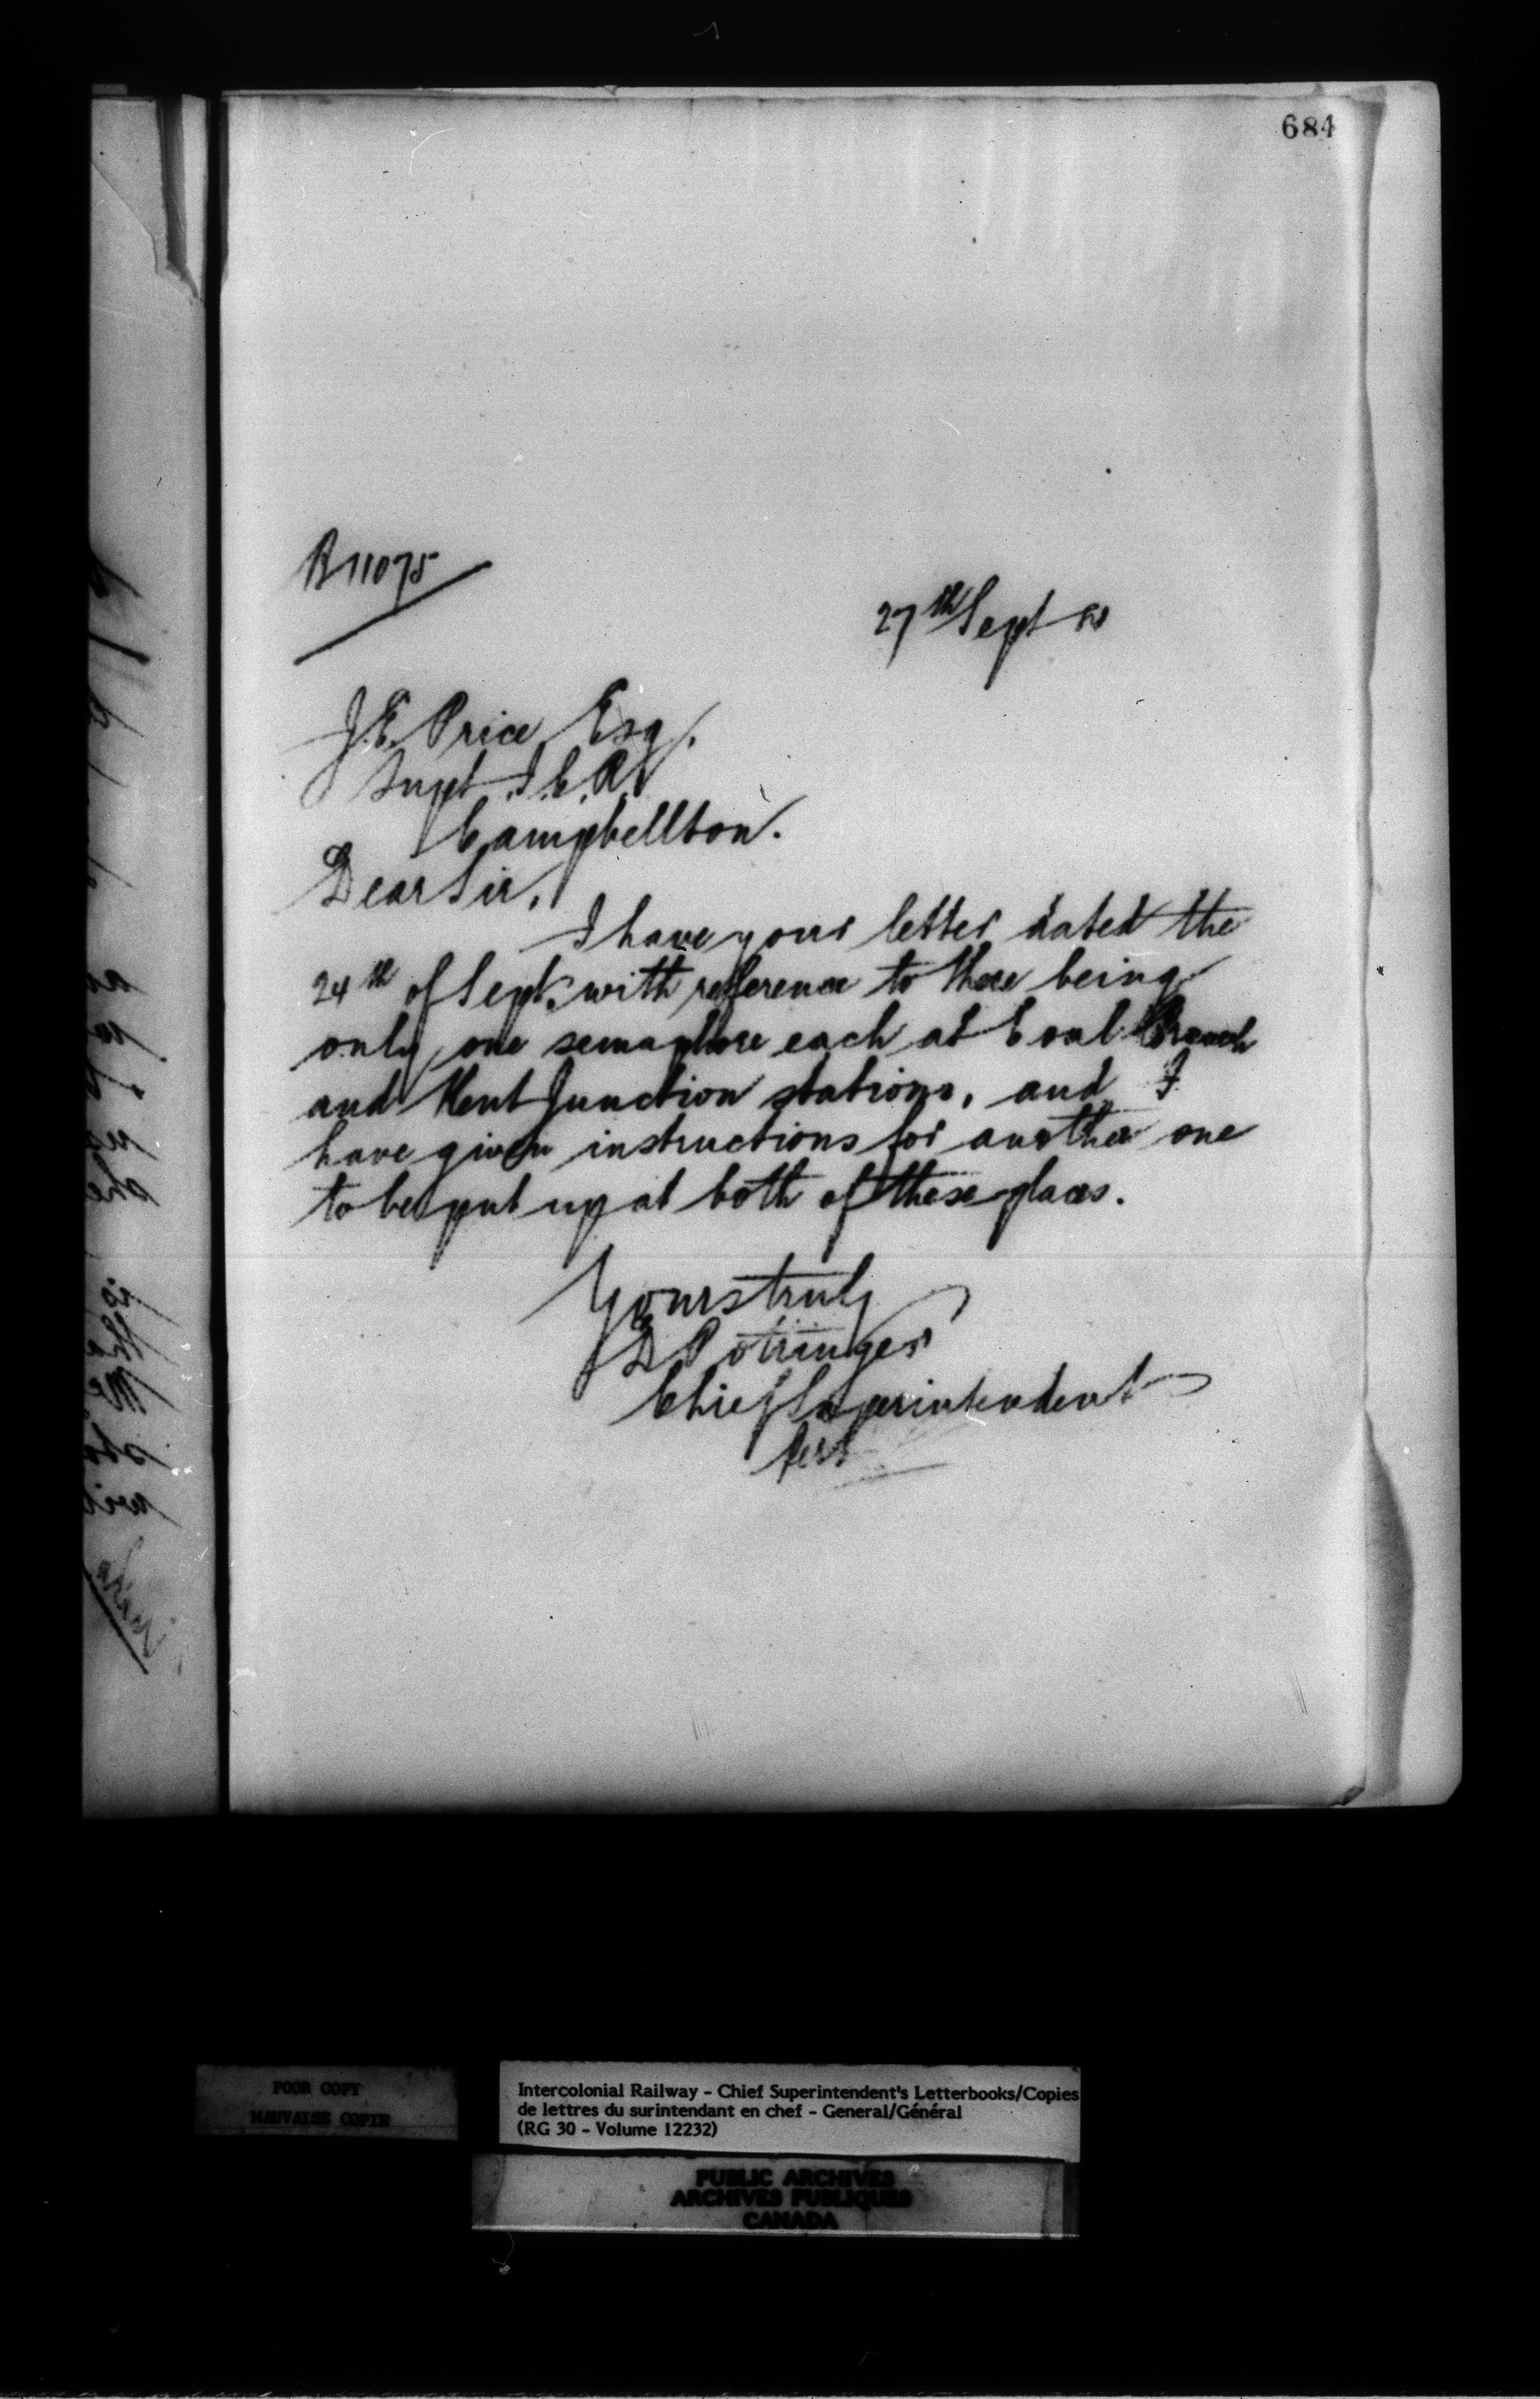 684
B11075
27th Sept
J.E. Price Esq.
Supt I.C.R.
Campbellton.
Dear Sir,
I have your letter dated the
24th of Sept. with reference to there being
only one semaphore each at Coal Branch
and Kent Junction stations, and I
have given instructions for another one
to be put up at both of these places.
Yours truly
D Pottinger
Chief Superintendent
POOR COPY
MAUVAISE COPIE
Intercolonial Railway - Chief Superintendent's Letterbooks/Copies
de lettres du surintendant en chef - General/Général
(RG 30 - Volume 12232)
PUBLIC ARCHIVES
ARCHIVES PUBLIQUES
CANADA